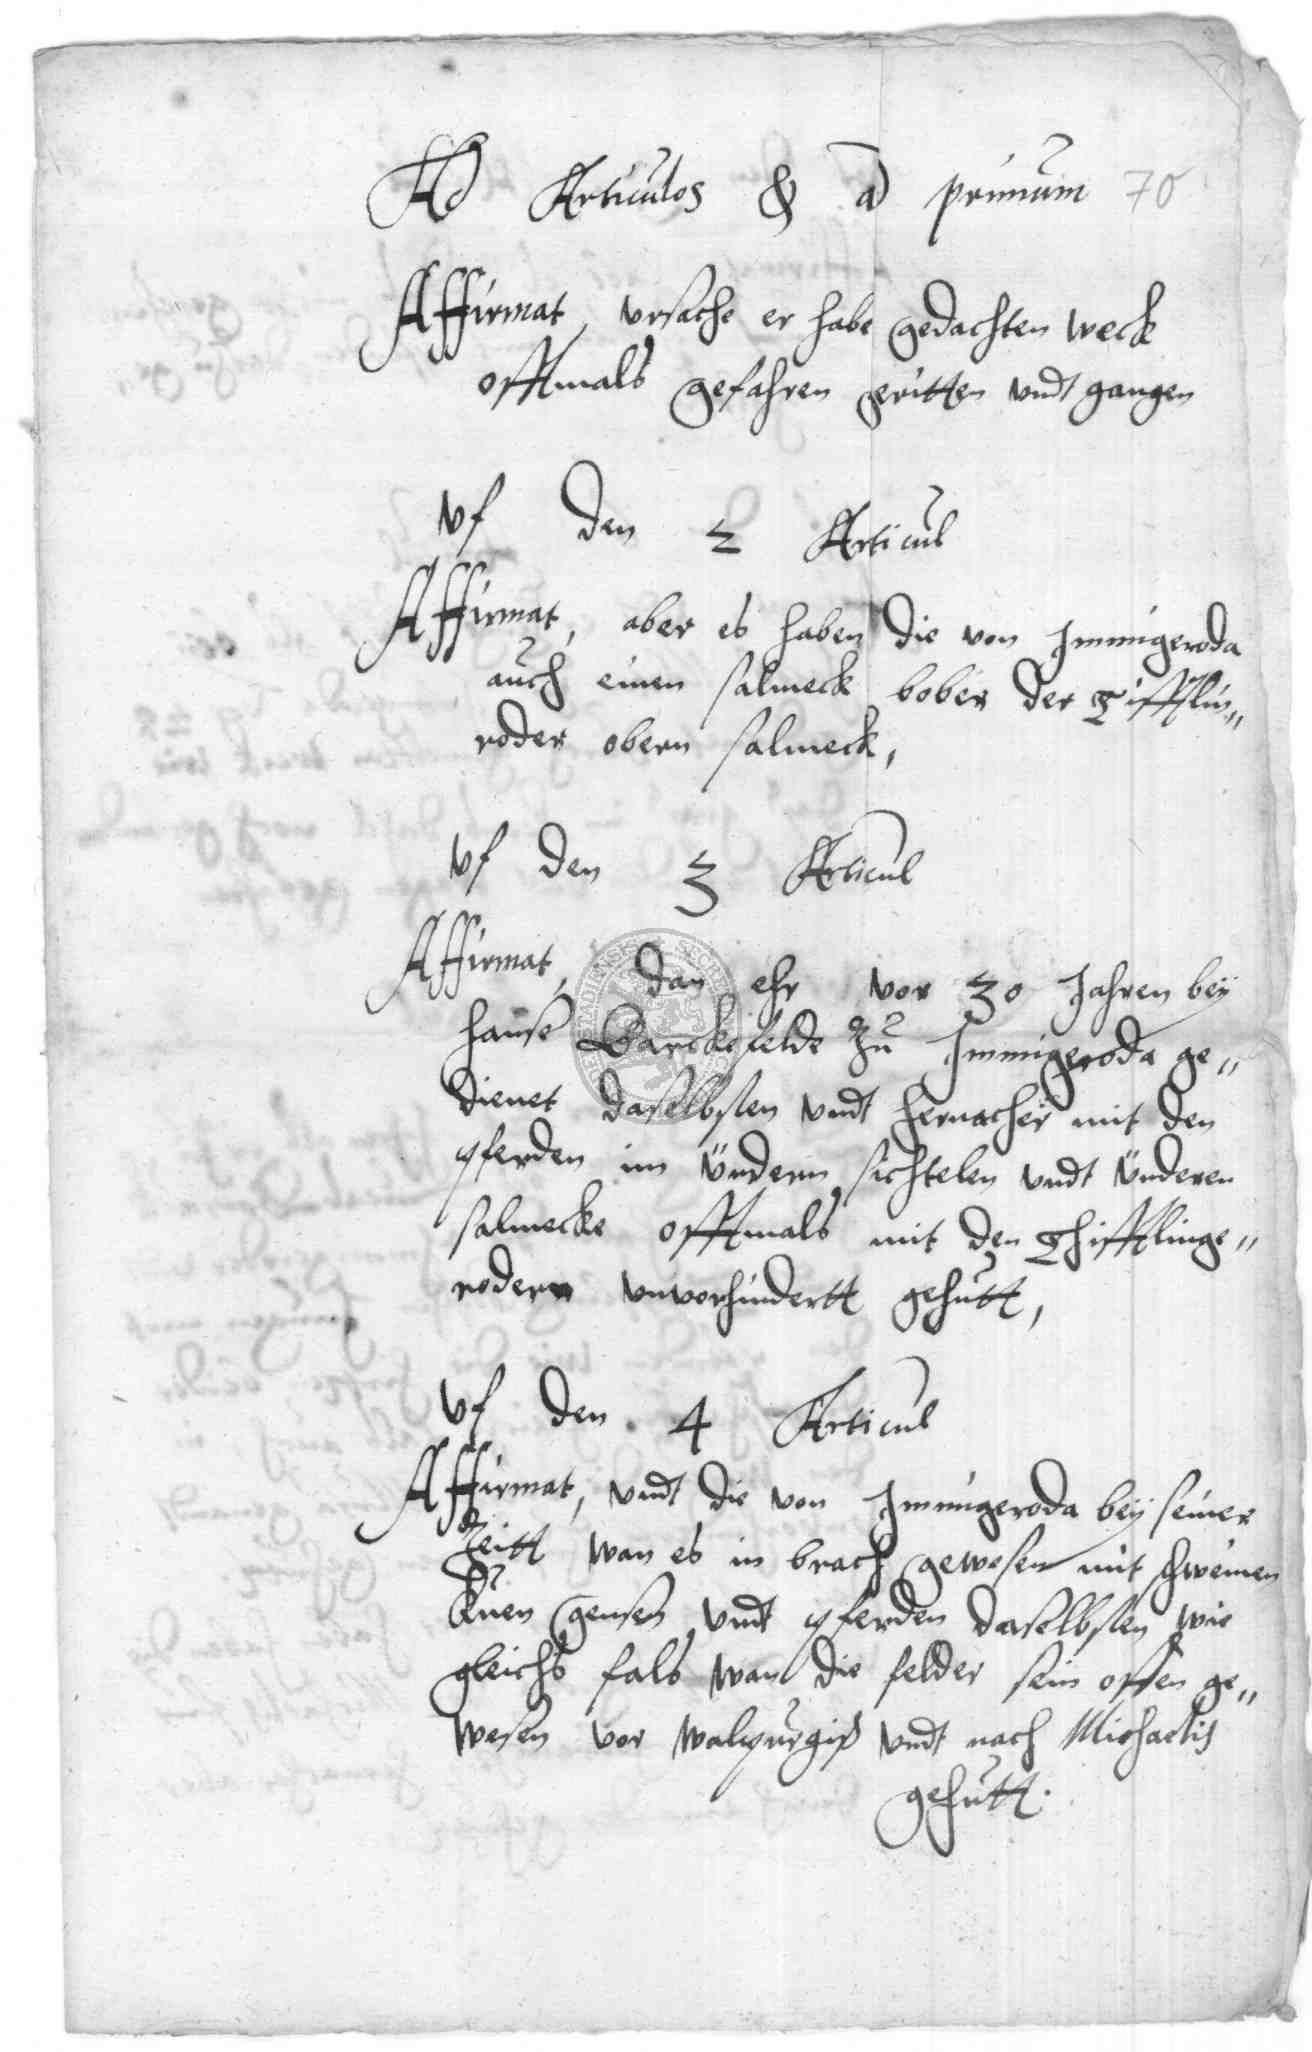 Ad Articulos & ad primum 70
Affirmat, vrsache er habe gedachten weck
offtmals gefahren geritten vndt gangen
vf den 2 Articul
Affirmat, aber es haben die von Immigeroda
auch einen salmeck bober der Tifftlin„
roder obern salmeck,
vf den 3 Articul
Affirmat, dan ehr vor 30 Jahren bey
hanse Barckefelde zu Immigeroda ge„
dienet daselbsten vndt hernacher mit den
pferden im ündern sichtelen vndt ünderen
salmecke offtmals mit den Thifftlinge„
rodern vnvorhindertt gehutt,
vf den 4 Articul
Affirmat, vndt die von Immigeroda bey seiner
Zeitt wan es in brach gewesen mit schweinen
Kuen gensen vndt pferden daselbsten wie
gleichs fals wan die felder sein offen ge„
wesen vor walpurgis vndt nach Michaelis
gehutt.